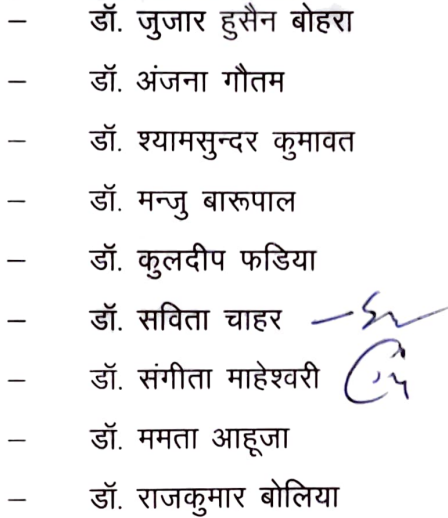 – डॉ. जुजार हुसैन बोहरा
– डॉ. अंजना गौतम
– डॉ. श्यामसुन्दर कुमावत
– डॉ. मन्जु बारूपाल
– डॉ. कुलदीप फडिया
– डॉ. सविता चाहर
– डॉ. संगीता माहेश्वरी
– डॉ. ममता आहूजा
– डॉ. राजकुमार बोलिया